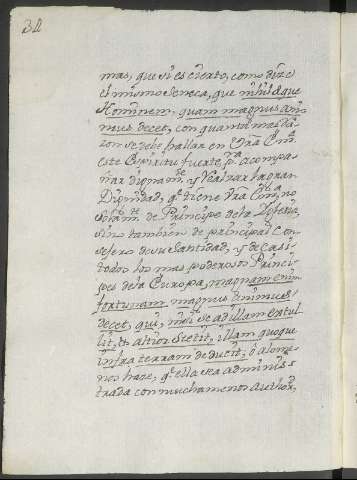 32
mas, que si es cierto, como dixo
el mismo Seneca, que nihil æque
Hominem, quam magnus ani-
mus decet, con quanta mas Ra-
zon se debe hallar en Vra Em.ª
este Espiritu fuerte p.ª acompa-
ñar dignam.te y realzar la gran
Dignidad, q.e tiene Vra Em.ª no
solam.te de Principe de la Yglesia,
sino tambien de principal Con-
sejero de su Santidad, y de casi
todos los mas poderosos Princi-
pes de la Europa, magnam enim
fortunam magnus animus
decet, qui, nisi se ad illam extul-
lit, & altior stetit, illam quoque
infra terram deducit, ò alome-
nos haze, q.e ella sea adminis-
trada con mucha menos Author.